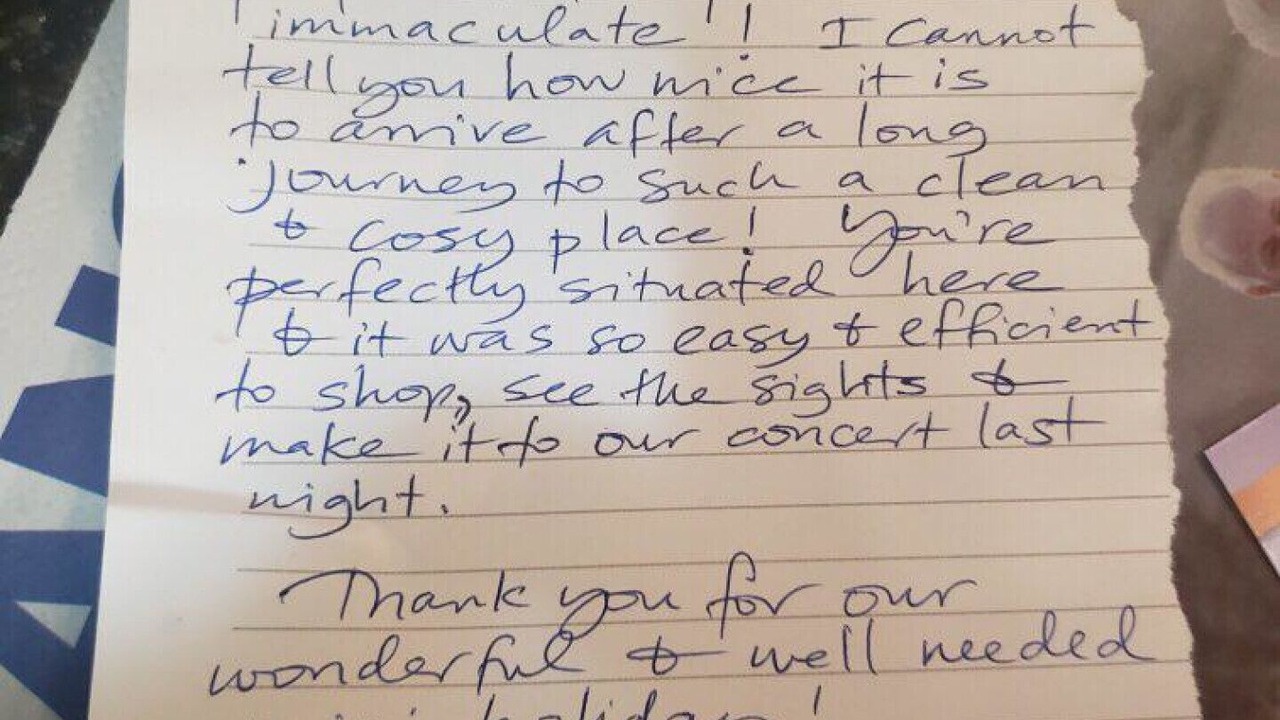 "immaculate"! I cannot
tell you how nice it is
to arrive after a long
journey to such a clean
& cosy place! You're
perfectly situated here
& it was so easy & efficient
to shop, see the sights &
make it to our concert last
night.
Thank you for our
wonderful & well needed
holiday!